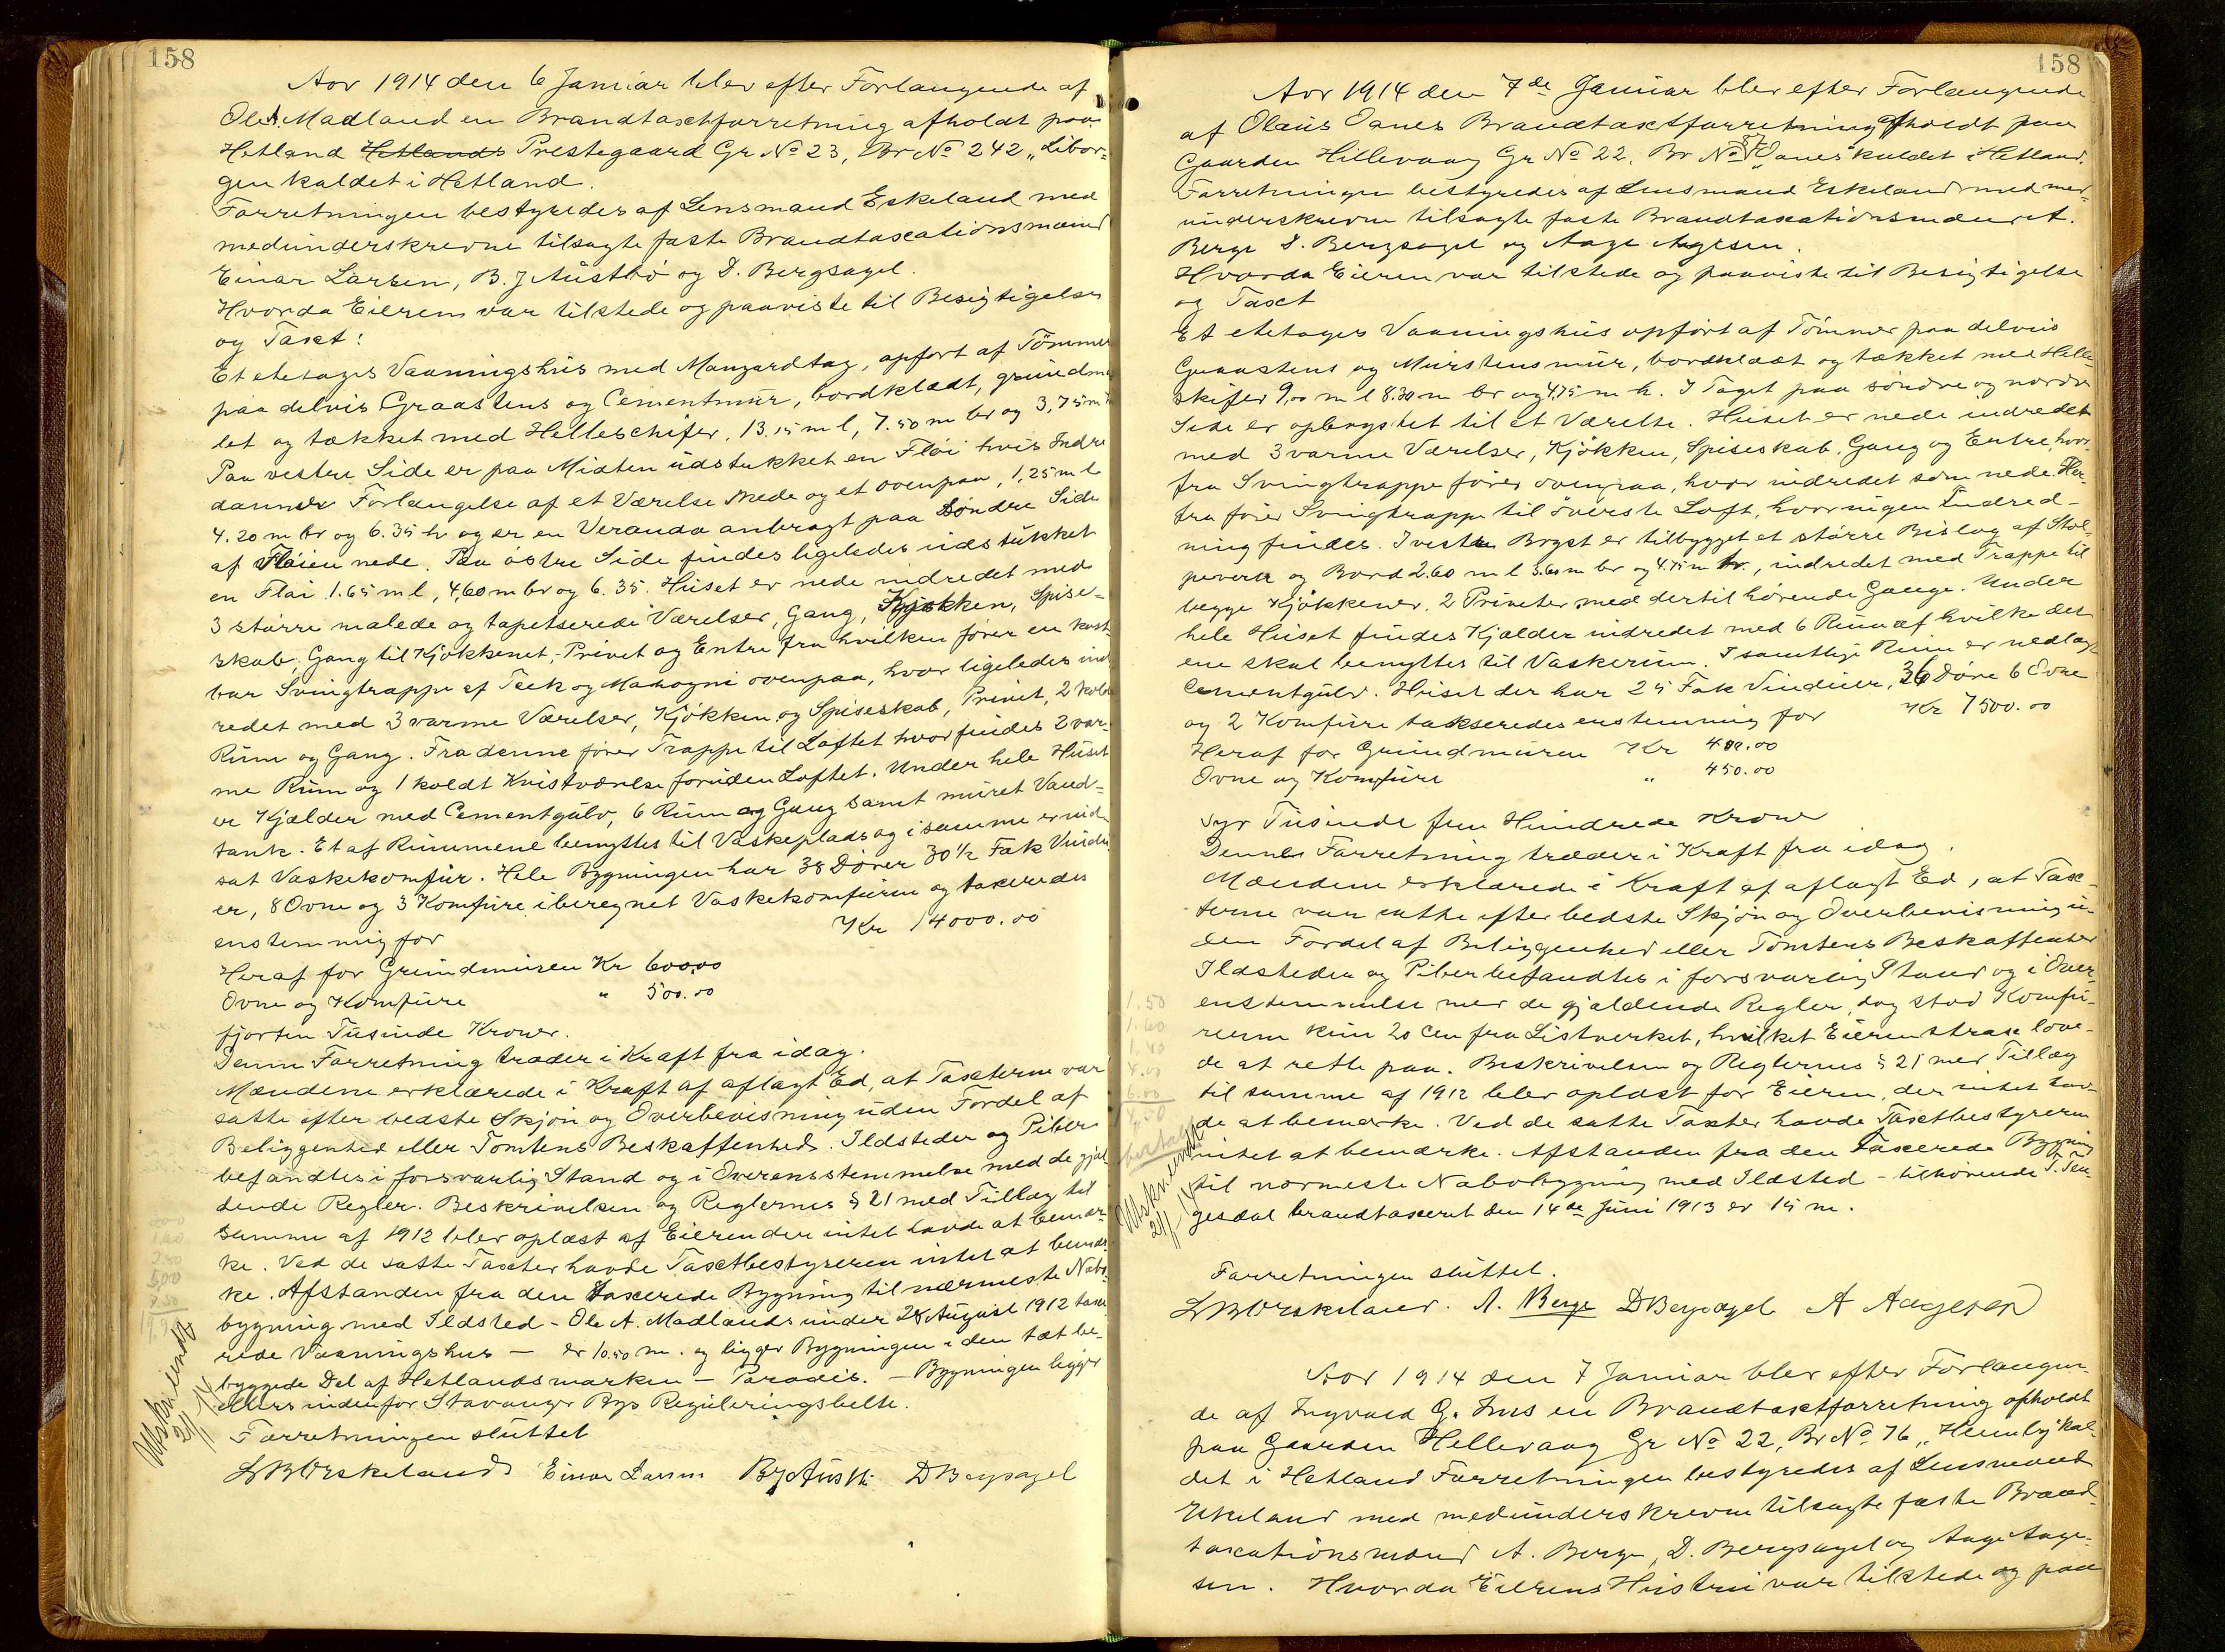 158
Aar 1914 den 6 Januar blev efter Forlangende af
Ole A. Madland en Brandtaxtforretning afholdt paa
Hetland Hetlands Prestegaard Gr No 23, Br No 242 „Libor-
gen kaldet i Hetland.
Forretningen bestyredes af Lensmand Eskeland med
medunderskrevne tilsagte faste Brandtaxationsmænd
Einar Larsen, B. J Austbø og D. Bergsagel.
Hvorda Eieren var tilstede og paaviste til Besigtigelse
og Taxt:
Et etetages Vaaningshus med Manzardtag, opført af Tømmer
paa delvis Graastens og Cementmur, bordklædt, grundma
let og tækket med Helleschifer, 13.15 m l, 7.50 m br og 3,75 m h
Paa vestre Side er paa Midten udstukket en Fløi hvis Indre
danner Forlængelse af et Værelse nede og et ovenpaa, 1,25 m l
4.20 m br og 6.35 h og er en Veranda anbragt paa Søndre Side
af Fløien nede. Paa østre Side findes ligeledes udstukket
en Fløi 1.65 m l, 4,60 m br og 6.35. Huset er nede indredet med
3 større malede og tapetserede Værelser, Gang, Kjøkken, Spise-
skab, Gang til Kjøkkenet, Privet og Entre fra hvilken fører en kost-
bar Svingtrappe af Teek og Mahogni ovenpaa, hvor ligeledes ind
redet med 3 varme Værelser, Kjøkken og Spiseskab, Privet, 2 kolde
Rum og Gang. Fra denne fører Trappe til Loftet hvor findes 2 var-
me Rum og 1 koldt Kvistværelse foruden Loftet. Under hele Huset
er Kjælder med Cementgulv, 6 Rum og Gang samt muret Vand-
tank. Et af Rummene benyttes til Vaskeplads og i samme er ind-
sat Vaskekomfur. Hele Bygningen har 38 Døver 30 1/2 Fak Vindu
er, 8 Ovne og 3 Komfure iberegnet Vaskekomfuren og taxeredes
enstemmig for Kr 14000.00
Heraf for Grundmuren Kr 600.00
Ovne og Komfure " 500.00
fjorten Tusinde Kroner.
Denne Forretning træder i Kraft fra idag.
Mændene erklærede i Kraft af aflagt Ed, at Taxterne var
satte efter bedste Skjøn og Overbevisning uden Fordel af
Beliggenhed eller Tomtens Beskaffenhed. Ildsteder og Piber
befandtes i forsvarlig Stand og i Overensstemmelse med de gjæl-
dende Regler. Beskrivelsen og Reglernes § 21 med Tillæg til
samme af 1912 blev oplæst af Eieren der intet havde at bemær-
ke. Ved de satte Taxter havde Taxtbestyreren intet at bemær-
ke. Afstanden fra den taxerede Bygning til nærmeste Nabo-
bygning med Ildsted - Ole A. Madlands under 28 August 1912 taxe
rede Vaaningshus - er 10.50 m. og ligger Bygningen i den tæt be-
byggede Del af Hetlandsmarken - Paradis. - Bygningen ligger
ellers indenfor Stavanger Bys Reguleringsbelte.
Forretningen sluttet
Einar Larsen D Bergsagel
158
Aar 1914 den 7de Januar blev efter Forlangende
af Olaus Oanes Brandtaxtforretning afholdt paa
Gaarden Hillevaag Gr No 22, Br No „Oanes" kaldet i Hetland.
Forretningen bestyredes af Lensmand Eskeland med med-
underskrevne tilsagte faste Brandtaxationsmænd A.
Berge D. Bergsagel og Aage Aagesen.
Hvorda Eieren var tilstede og paaviste til Besigtigelse
og Taxt
Et etetages Vaaningshus opført af Tømmer paa delvis
Graastens og Murstensmur, bordklædt og tækket med Helle-
skifer 9,00 m l 8.30 m br og 4,75 m h. I Taget paa søndre og nordre
Side er opbrystet til et Værelse. Huset er nede indredet
med 3 varme Værelser, Kjøkken, Spiseskab, Gang og Entre, hvor-
fra Svingtrappe fører ovenpaa, hvor indredet som nede. Her-
fra fører Svingtrappe til øverste Loft, hvor ingen Indred-
ning findes. I vestre Bryst er tilbygget et større Bislag af Stol-
peverk og Bord 2.60 m l 3.60 m br og 4.75 m h., indredet med Trappe til
begge Kjøkkener, 2 Priveter med dertil hørende Gange. Under
hele Huset findes Kjælder indredet med 6 Rum af hvilke det
ene skal benyttes til Vaskerum. I samtlige Rum er nedlagt
Cementgulv. Huset der har 25 Fak Vinduer, 36 Døre 6 Ovne
og 2 Komfure taxseredes enstemmig for Kr 7500.00
Heraf for Grundmuren Kr 400.00
Ovne og Komfure " 450.00
Syv Tusinde fem Hundrede Kroner
Denne Forretning træder i Kraft fra idag.
Mændene erklærede i Kraft af aflagt Ed, at Tax-
terne var satte efter bedste Skjøn og Overbevisning u-
den Fordel af Beliggenhed eller Tomtens Beskaffenhed
Ildsteder og Piber befandtes i forsvarlig Stand og i Over-
enstemmelse med de gjældende Regler, dog stod Komfu-
rerne kun 20 Cm fra Listverket, hvilket Eieren strax love-
de at rette paa. Beskrivelsen og Reglernes § 21 med Tillæg
til samme af 1912 blev oplæst for Eieren, der intet hav-
de at bemærke. Ved de satte Taxter havde Taxtbestyreren
intet at bemærke. Afstanden fra den taxerede Bygning
til nærmeste Nabobygning med Ildsted - tilhørende T. Ten-
gesdal brandtaxeret den 14de Juni 1913 er 15 m.
Forretningen sluttet.
A. Berge D Bergsagel A Aagesen
Aar 1914 den 7 Januar blev efter Forlangen-
de af Ingvald G. Hus en Brandtaxtforretning afholdt
paa Gaarden Hillevaag Gr No 22, Br No 76 „Heimly" kal-
det i Hetland Forretningen bestyredes af Lensmand
Eskeland med medunderskrevne tilsagte faste Brand-
taxationsmænd A. Berge, D. Bergsagel og Aage Aage-
sen. Hvorda Eierens Hustru var tilstede og paa